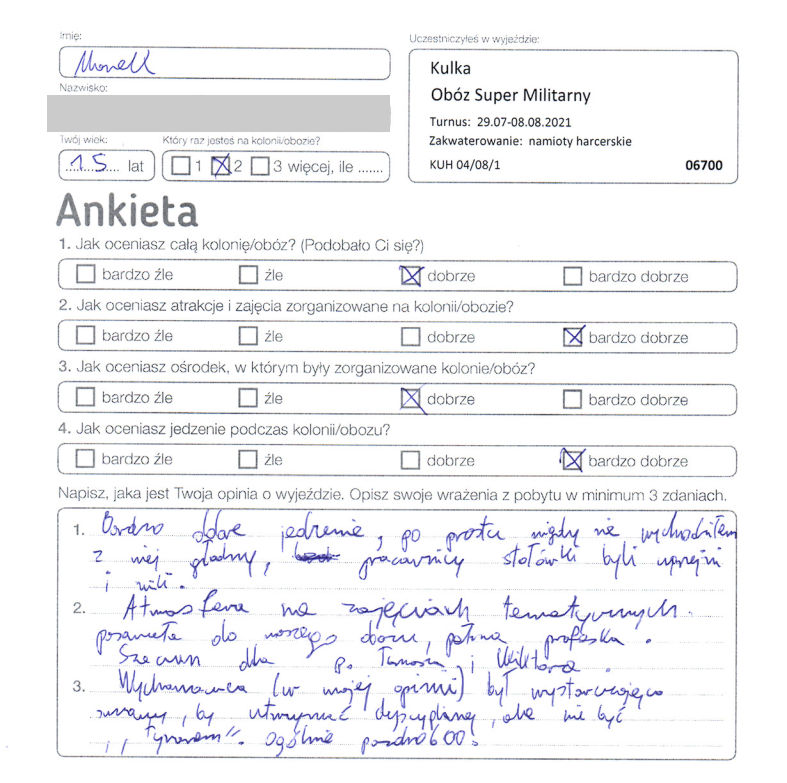 Imię:
Uczestniczyłeś w wyjeździe:
Nazwisko:
Kulka
Obóz Super Militarny
Turnus: 29.07-08.08.2021
Zakwaterowanie: namioty harcerskie
KUH 04/08/1 06700
Twój wiek: Który raz jesteś na kolonii/obozie?
15 lat 1 2 3 więcej, ile .......
Ankieta
1. Jak oceniasz całą kolonię/obóz? (Podobało Ci się?)
bardzo źle źle dobrze bardzo dobrze
2. Jak oceniasz atrakcje i zajęcia zorganizowane na kolonii/obozie?
bardzo źle źle dobrze bardzo dobrze
3. Jak oceniasz ośrodek, w którym były zorganizowane kolonie/obóz?
bardzo źle źle dobrze bardzo dobrze
4. Jak oceniasz jedzenie podczas kolonii/obozu?
bardzo źle źle dobrze bardzo dobrze
Napisz, jaka jest Twoja opinia o wyjeździe. Opisz swoje wrażenia z pobytu w minimum 3 zdaniach.
1. Bardzo dobre jedzenie, po prostu nigdy nie wychodziłem
z niej głodny, pracownicy stołówki byli uprzejmi
i mili.
2. Atmosfera na zajęciach tematycznych
do naszego obozu, pełna profeska.
dla p. i Wiktora.
3. Wychowawca (w mojej opinii) był wystarczająco
by utrzymać dyscyplinę, ale nie być
,,Tyranem". Ogólnie pozdro 600.